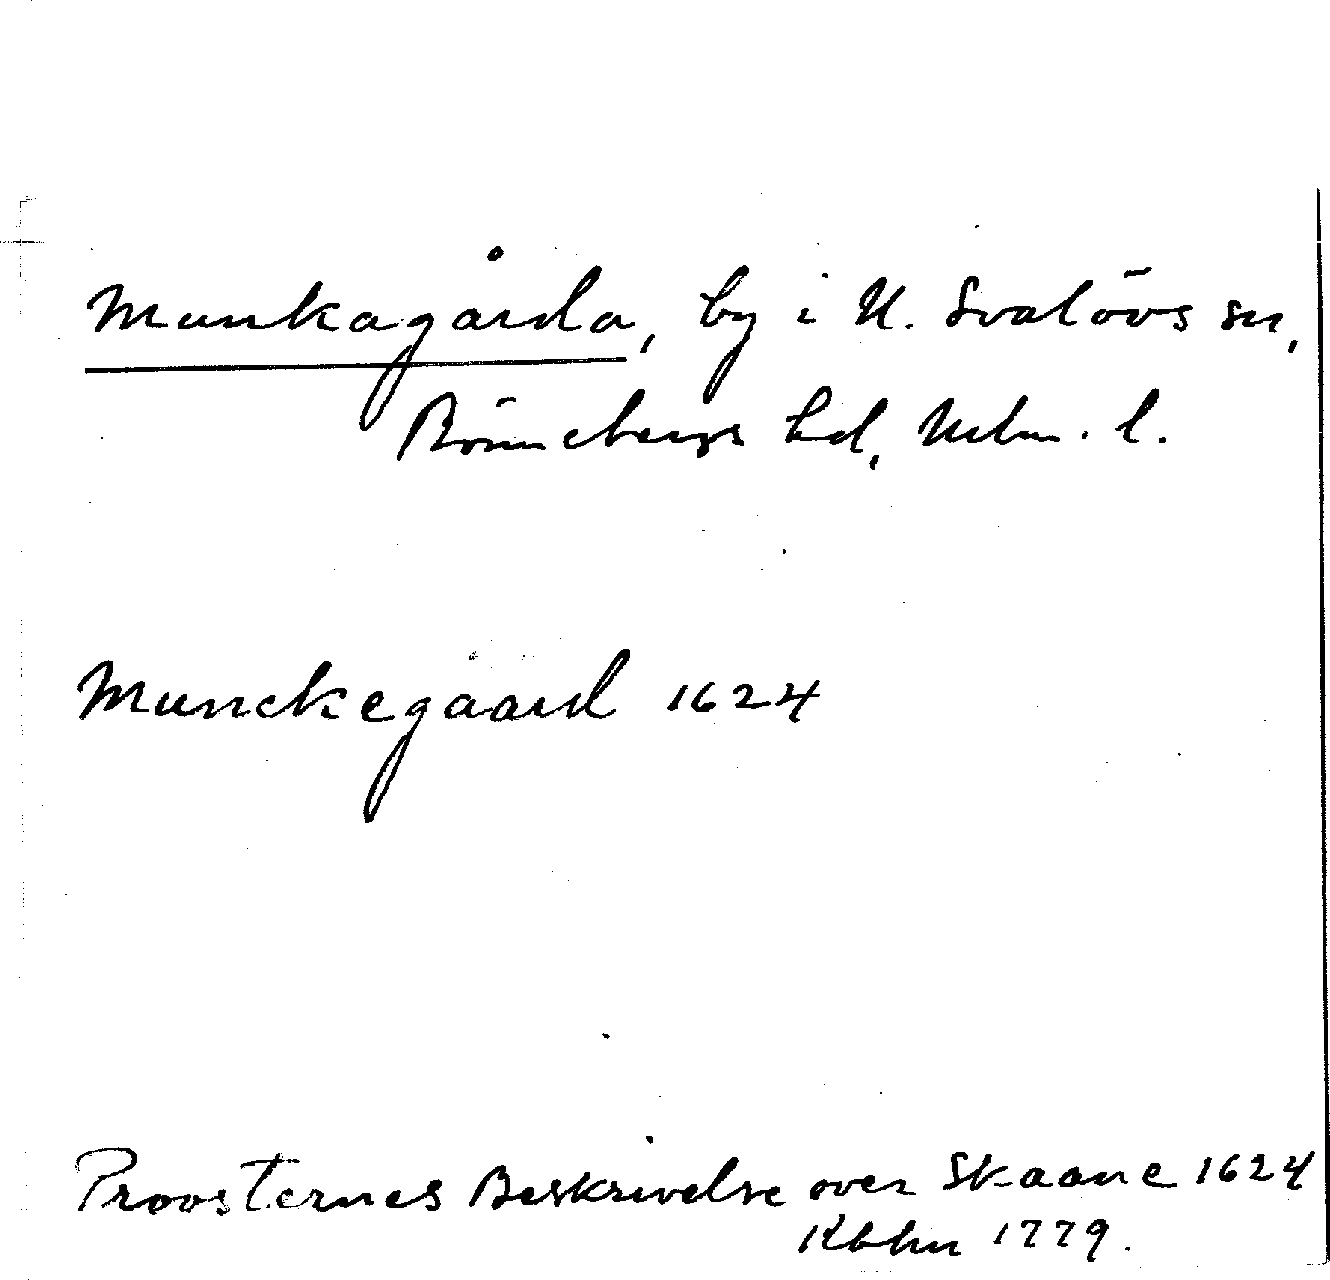 Munkagårda, by i N. Svalövs sn,
Rönnebergs hd, Mlm. l.
Munckegaard 1624
Proosternes Beskrivelse over Skaane 1624
Kbhn 1779.